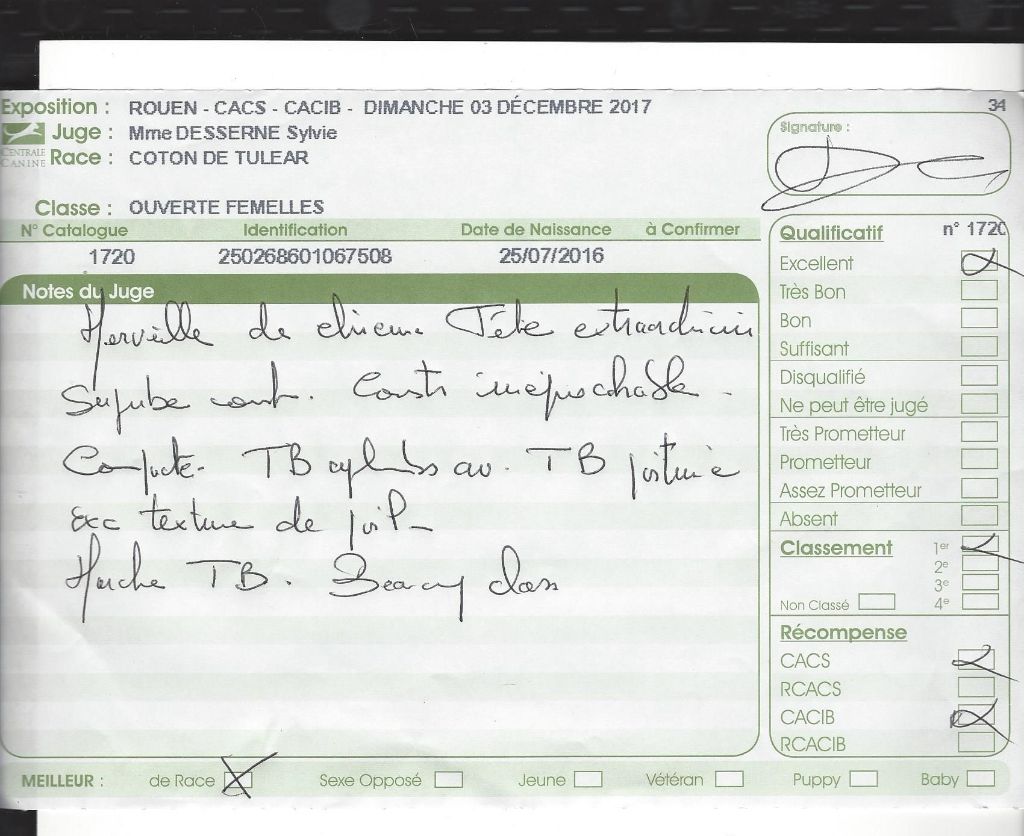 Exposition : ROUEN - CACS - CACIB - DIMANCHE 03 DÉCEMBRE 2017
34
Juge : Mme DESSERNE Sylvie
CENTRALE CANINE
Race : COTON DE TULEAR
Signature :
Classe : OUVERTE FEMELLES
N° Catalogue Identification Date de Naissance à Confirmer
1720 250268601067508 25/07/2016
Notes du Juge
Merveille de chienne Tête
Superbe cont. Const irréprochable -
Compacte - TB TB
Exc texture de poil -
Marche TB. class
Qualificatif n° 1720
Excellent
Très Bon
Bon
Suffisant
Disqualifié
Ne peut être jugé
Très Prometteur
Prometteur
Assez Prometteur
Absent
Classement 1er
2e
3e
Non Classé 4e
Récompense
CACS
RCACS
CACIB
RCACIB
MEILLEUR : de Race Sexe Opposé Jeune Vétéran Puppy Baby